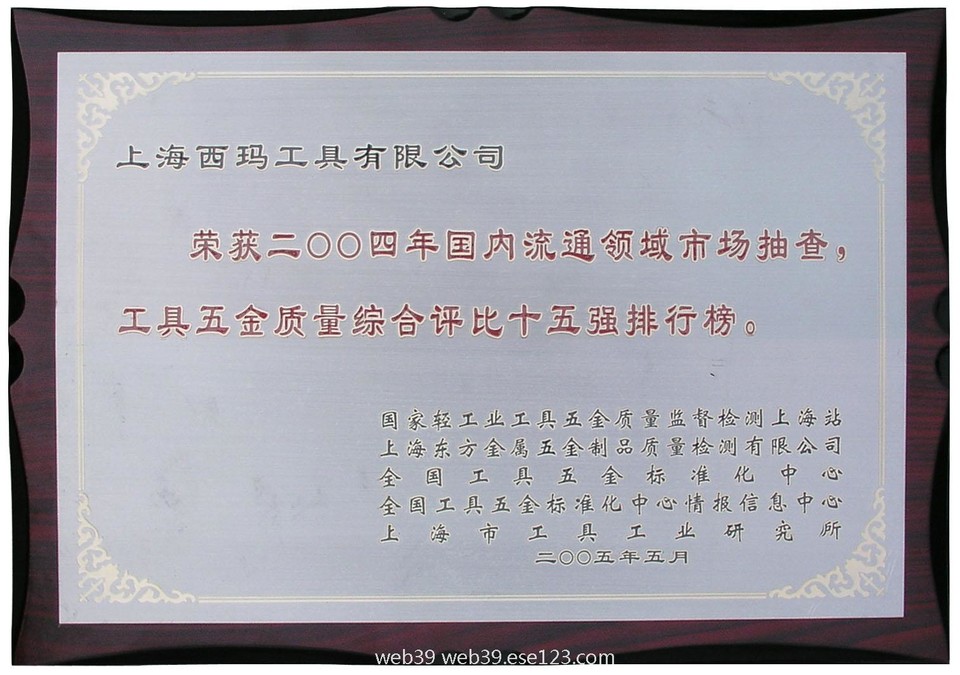 上海西玛工具有限公司
荣获二〇〇四年国内流通领域市场抽查，
工具五金质量综合评比十五强排行榜。
国家轻工业工具五金质量监督检测上海站
上海东方金属五金制品质量检测有限公司
全国工具五金标准化中心
全国工具五金标准化中心情报信息中心
上海市工具工业研究所
二〇〇五年五月
web39 web39.ese123.com